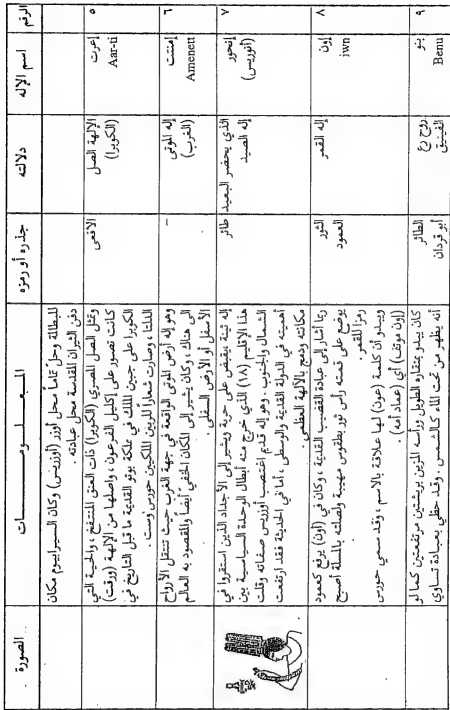 الرقم
اسم الإله
دلالته
جذره أو رمزه
المـــعـــلـــومـــات
الصورة
للبطالة وحل تماماً محل أوزر (أوزيريس) وكان السيرابيوم مكان
دفن الثيران المقدسة محل عبادته.
٥
إعرت
Aar-ti
الإلهة الصل
(الكوبرا)
الافعى
وتمثل الصل المصري (الكوبرا) ذات العنق المنتفخ، والحية التي
كانت تصور على إكليل الفرعون، واصلها من الإلهة (ووقت)
الكوبرا على جبين الملك في مملكة بوتو القديمة ما قبل التاريخ في
الدلتا، وصارت شعاراً للربتين الملكيتين حورس وست.
٦
إمنتت
Amenett
إله الموتى
(الغرب)
–
وهو إله أرض الموتى الواقعة في جهة الغرب حيث تنتقل الأرواح
الى هناك، وكان يشير إلى المكان الخفي أيضاً والمقصود به العالم
الأسفل أو الأرض السفلى.
٧
إنحور
(أنوريس)
الذي يحضر البعيد
إله الصيد
طائر
إله ثينة يقبض على حربة ويشير إلى الأجداد الذين استقروا في
هذا الإقليم (١٨) الذي خرج منه أبطال الوحدة السياسية بين
الشمال والجنوب. وهو إله قديم اغتصب أوزيريس صفاته وقلت
أهميته في الدولة القديمة والوسطى، أما في الحديثة فقد ارتفعت
مكانته ودمج بالآلهة العظمى.
٨
إون
iwn
إله القمر
الثور
العمود
ربما أشار إلى عبادة القضيب القديمة، وكان في (أون) يرفع كعمود
يوضع على قمته رأس ثور بطقوس مهيبة ولصلته بالمسلة أصبح
رمزاً للقمر.
ويبدو أن كلمة (عون) لها علاقة بالاسم، وقد سمي حورس
(إون موتف) أي (عماد امه).
٩
بنو
Benu
روح رع
الفينيق
الطائر
أبو قردان
كان يبدو بمنقاره الطويل ورأسه المزين بريشتين مرتفعتين كما لو
أنه يظهر من تحت الماء كالشمس. وقد حظي بعبادة تساوي